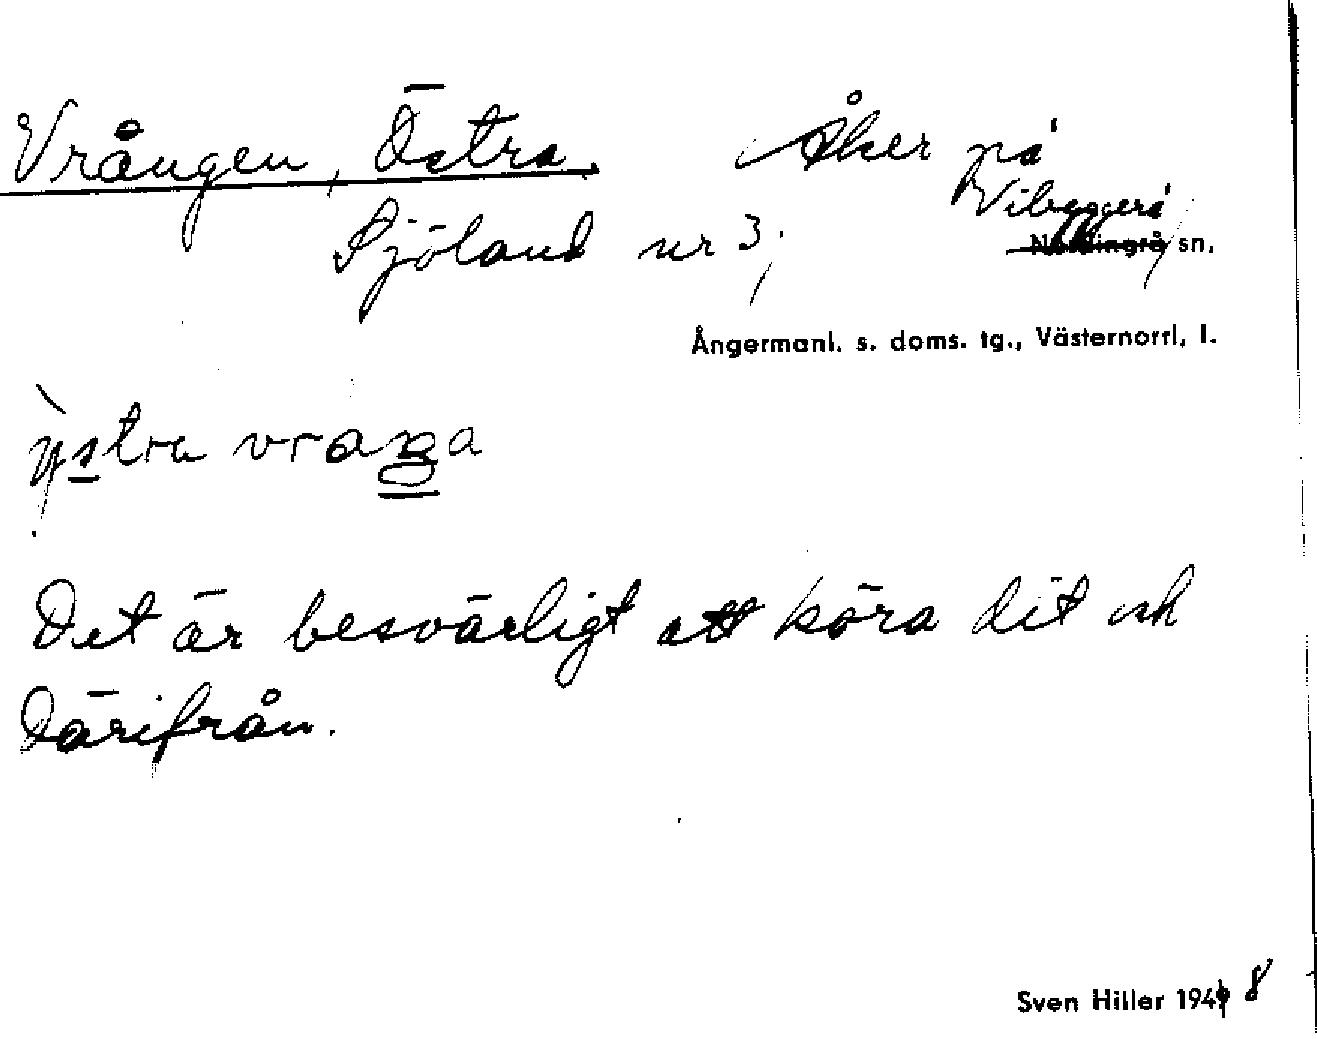 Vrången, Östra. Åker på
Sjöland nr 3, Vibyggerå
Nordingrå sn.
Ångermanl. s. doms. tg., Västernorrl. l.
Det är besvärligt att köra dit och
därifrån.
Sven Hiller 194 8